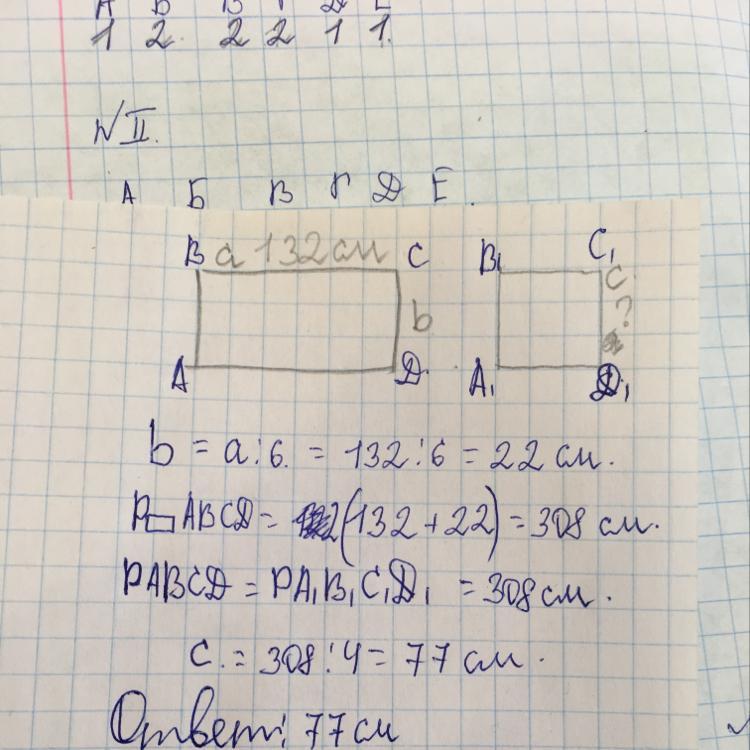 А Б В Г Д Е
1 2. 2 2 1 1.
№ II.
А Б В Г Д Е.
В а 132 см С В₁ С₁
b с ?
А D A₁ D₁
b = a : 6. = 132 : 6 = 22 см.
P▭ ABCD = 2(132 + 22) = 308 см.
PABCD = PA₁B₁C₁D₁ = 308 см.
c. = 308 : 4 = 77 см.
Ответ: 77 см